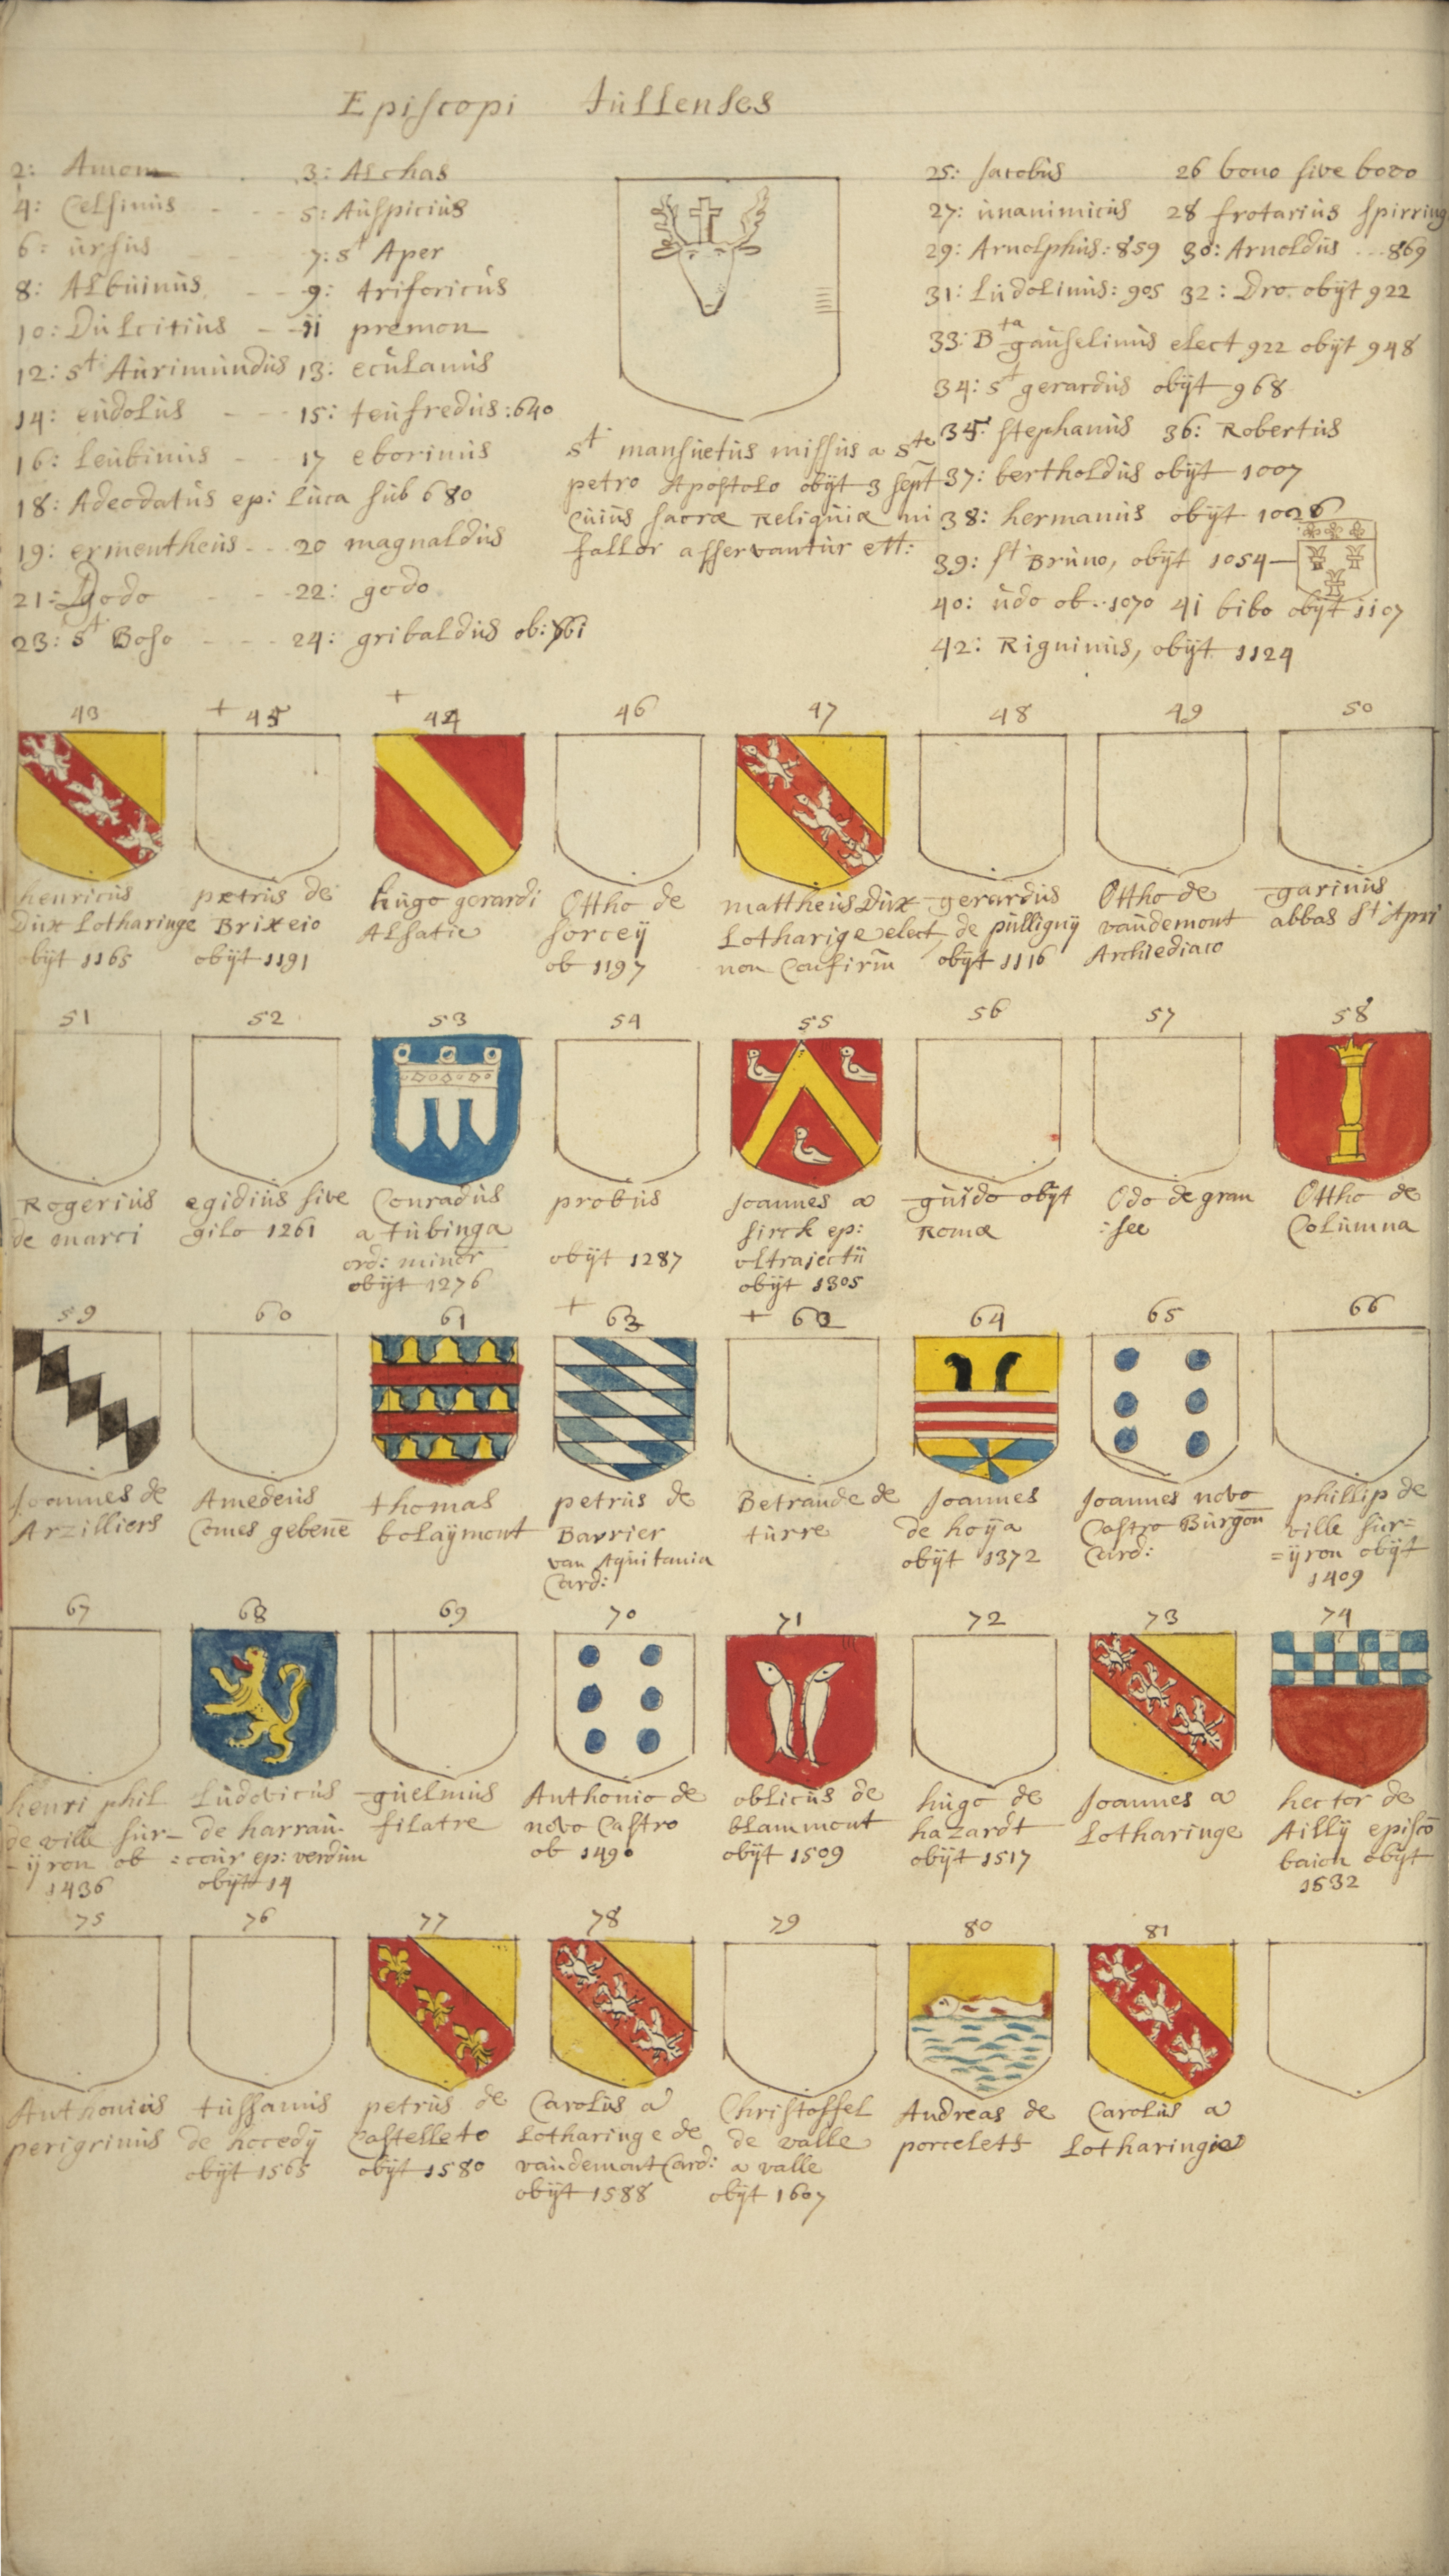 Episcopi tullenses
2: Amom 3: Alchas
4: Celsinus 5: Auspicius
6: ursus 7: St Aper
8: Albuinus 9: trisoricus
10: Dulcitius 11 premon
12: St Aurimundus 13: eculanus
14: eudolus 15: teufredus: 640
16: leubinus 17 eborinus
18: Adeodatus ep: luca sub 680
19: ermentheus 20 magnaldus
21: Dodo 22: godo
23: St Boso 24: gribaldus ob: 761
St mansuetus missus a Ste
petro Apostolo obijt 3 sept
Cuius sacræ Reliquiæ ni
fallor asservantur ett:
25: Jacobus 26 bono sive bovo
27: unanimicus 28 frotarius spirring
29: Arnolphus: 859 30: Arnoldus 869
31: Ludolinus: 905 32: Dro. obijt 922
33: Bta gauselinus elect 922 obijt 948
34: St gerardus obijt 968
35: stephanus 36: Robertus
37: bertholdus obijt 1007
38: hermanus obijt 1026
39: St Bruno, obijt 1054
40: udo ob. 1070 41 bibo obijt 1107
42: Riguinus, obijt 1124
43 + 45 + 44 46 47 48 49 50
henricus
Dux Lotharinge
obijt 1165
petrus de
Brixeio
obijt 1191
hugo gerardi
Alsatie
Ottho de
sorcey
ob 1197
mattheus Dux
Lotharige elect
non Confirm̄
gerardus
de pulligny
obijt 1116
Ottho de
vaudemont
Archediaco
garinus
abbas St Apri
51 52 53 54 55 56 57 58
Rogerius
de marci
egidius sive
gilo 1261
Conradus
a tubinga
ord: minor
obijt 1276
probus
obijt 1287
Joannes a
sirck ep:
oltrajectii
obijt 1305
guido obijt
Romæ
Odo de gran
:see
Ottho de
Columna
59 60 61 + 63 + 62 64 65 66
Joannes de
Arzilliers
Amedeus
Comes gebenē
thomas
bolaymont
petrus de
Barrier
van Aquitania
Card:
Betrande de
turre
Joannes
de hoya
obijt 1372
Joannes novo
Castro Burgon̄
Card:
phillip de
ville sur=
=ijron obijt
1409
67 68 69 70 71 72 73 74
henri phil
de ville sur-
-ijron ob
1436
Ludovicus
de harrau-
:cour ep: verdun
obijt 14
guelmus
filatre
Anthonio de
novo Castro
ob 1490
oblicus de
blammont
obijt 1509
hugo de
hazardt
obijt 1517
Joannes a
Lotharinge
hector de
Ailly episcō
baion obijt
1532
75 76 77 78 79 80 81
Anthonius
perigrinus
tussanus
de hocedy
obijt 1565
petrus de
Castelleto
obijt 1580
Carolus a
Lotharinge de
vaudemont Card:
obijt 1588
Christoffel
de valle
a valle
obijt 1607
Andreas de
porcelets
Carolus a
Lotharingia